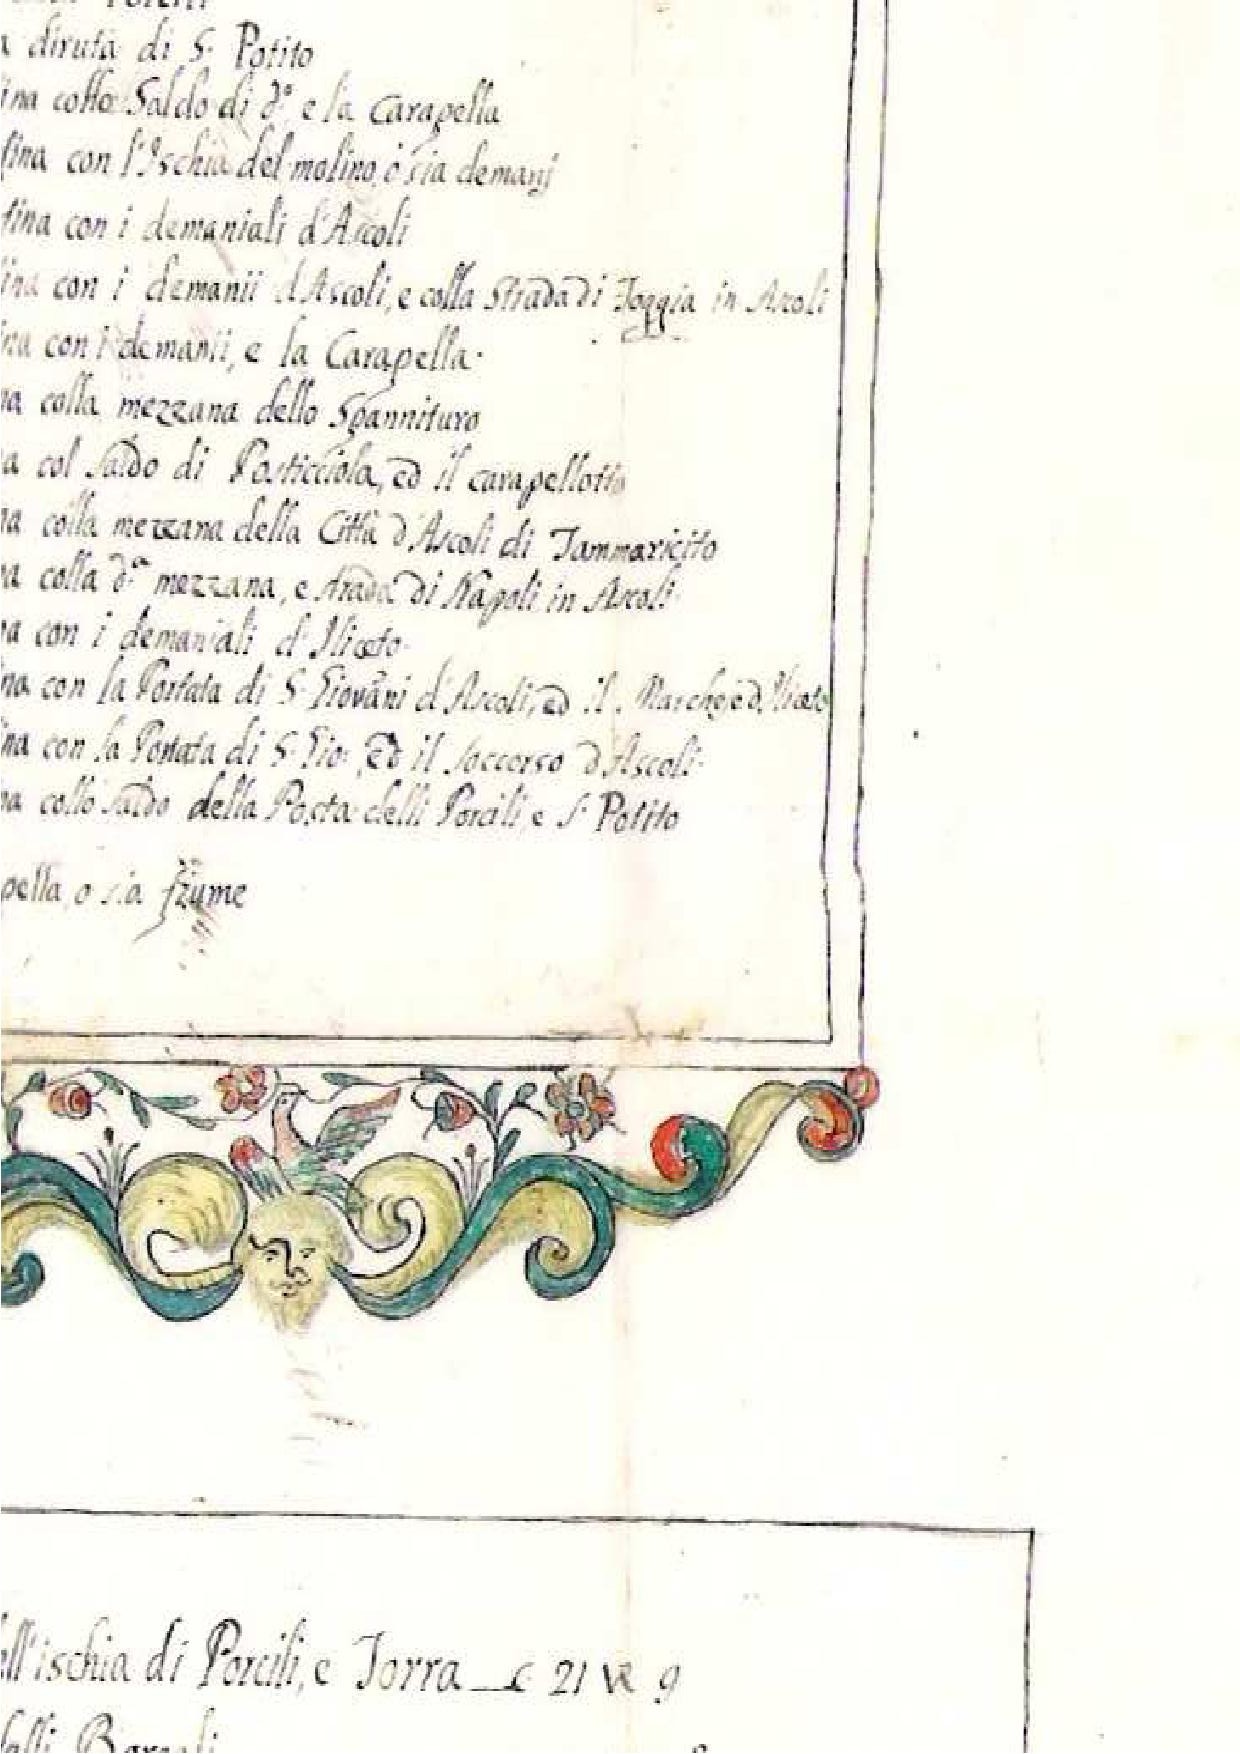 diruta di S. Potito
ina collo Saldo di d.º e la Carapella
fina con l'Ischia del molino, ò sia demanj
fina con i demaniali d'Ascoli
ina con i demanii d'Ascoli, e colla Strada di Foggia in Ascoli
ina con i demanii, e la Carapella.
na colla mezzana dello Spannituro
a col Saldo di Pasticciola, ed il carapellotto
na colla mezzana della Città d'Ascoli di Tammaricito
na colla d.ª mezzana, e strada di Napoli in Ascoli.
na con i demaniali d'Iliceto.
ina con la Portata di S. Giovãni d'Ascoli, ed il Marchese d'Iliceto
ina con la Portata di S. Gio: ed il Soccorso d'Ascoli.
na collo Saldo della Posta delli Porcili, e S. Potito
pella, o sia fiume
ell'ischia di Porcili, e Torra C 21 V 9
dalli